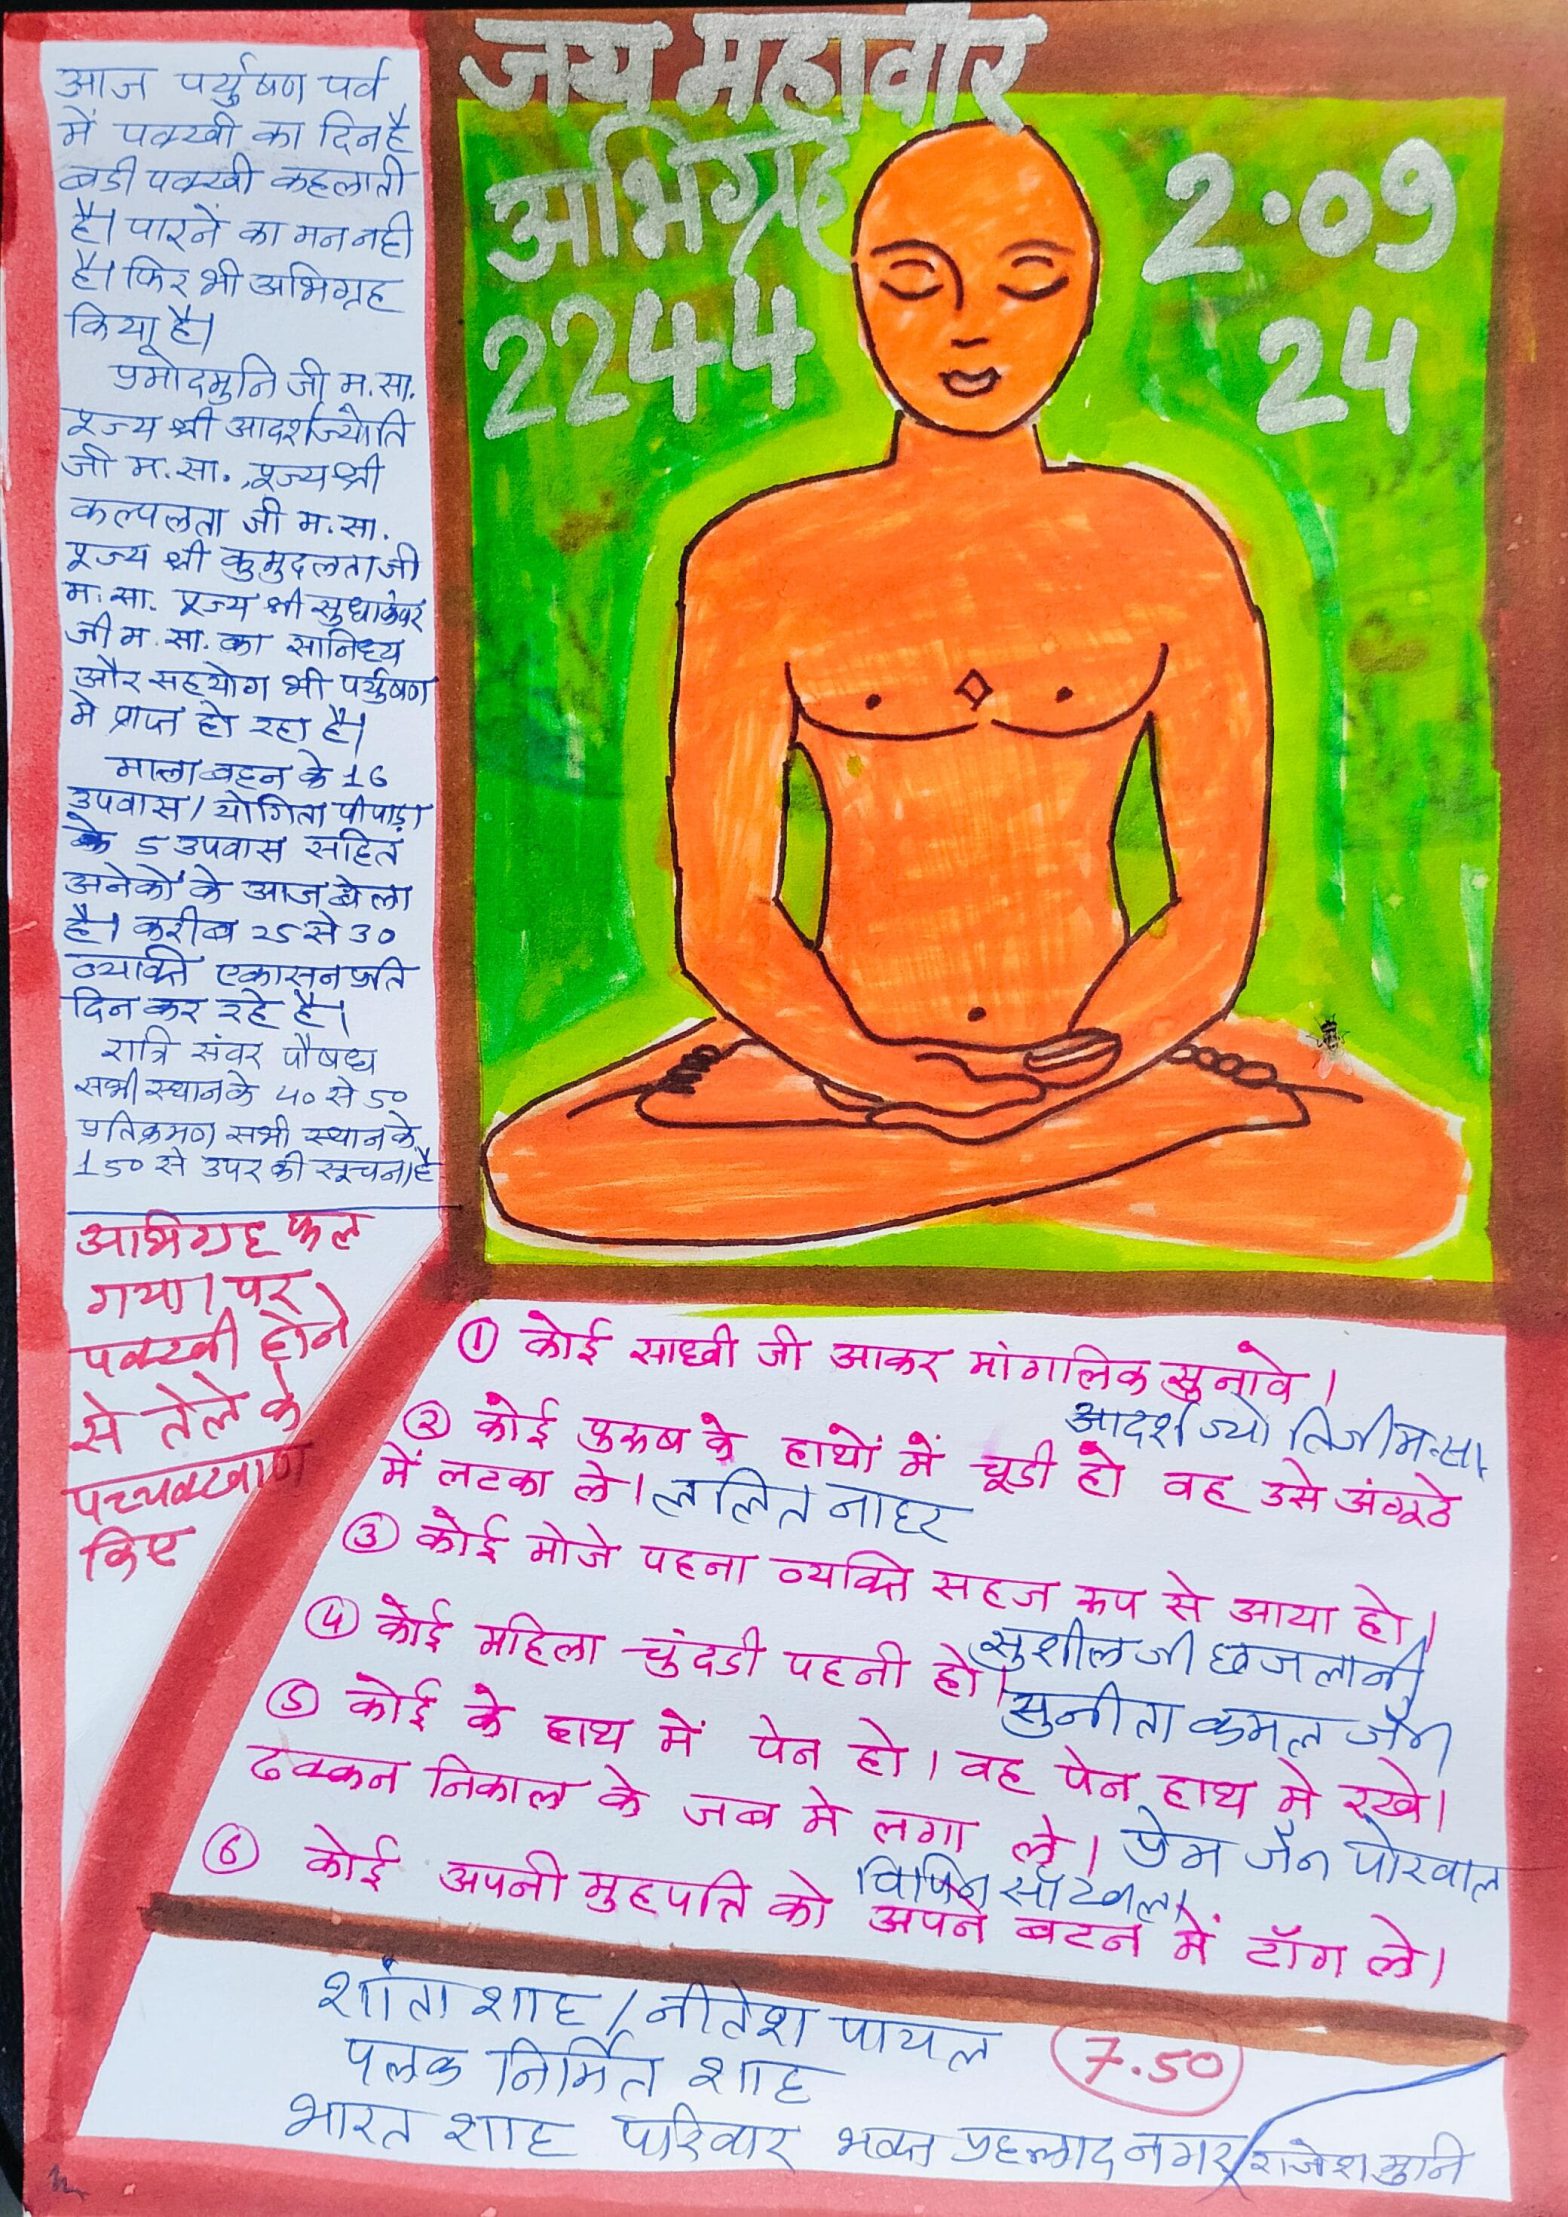 जय महावीर
अभिग्रह
2244
2.09
24
आज पर्युषण पर्व
में पक्खी का दिन है
बडी पक्खी कहलाती
है। पारने का मन नही
है। फिर भी अभिग्रह
किया है।
प्रमोदमुनि जी म.सा.
पूज्य श्री आदर्शज्योति
जी म.सा., पूज्य श्री
कल्पलता जी म.सा.
पूज्य श्री कुमुदलताजी
म.सा. पूज्य श्री सुधाकंवर
जी म.सा. का सानिध्य
और सहयोग भी पर्युषण
मे प्राप्त हो रहा है।
माला बहन के 16
उपवास / योगिता पीपाड़ा
के 5 उपवास सहित
अनेकों के आज बेला
है। करीब 25 से 30
व्यक्ति एकासन प्रति
दिन कर रहे है।
रात्रि संवर पौषध
सभी स्थान के 40 से 50
प्रतिक्रमण सभी स्थान के
150 से उपर की सूचना है
अभिग्रह फल
गया। पर
पक्खी होने
से तेले के
पच्चक्खाण
किए
① कोई साध्वी जी आकर मांगलिक सुनावे।
आदर्श ज्योतिजी म.सा.
② कोई पुरुष के हाथों में चूडी हो वह उसे अंगूठे
में लटका ले। ललित नाहर
③ कोई मोजे पहना व्यक्ति सहज रूप से आया हो।
सुशील जी छजलानी
④ कोई महिला चुंदडी पहनी हो।
सुनीता कमल जैन
⑤ कोई के हाथ में पेन हो। वह पेन हाथ मे रखे।
ढक्कन निकाल के जब मे लगा ले। प्रेम जैन पोरवाल
विपिन
⑥ कोई अपनी मुहपत्ति को अपने बटन में टॉग ले।
शांता शाह / नीतेश पायल
7.50
पलक निर्मित शाह
भारत शाह परिवार भक्त प्रहलाद नगर / राजेश मुनि